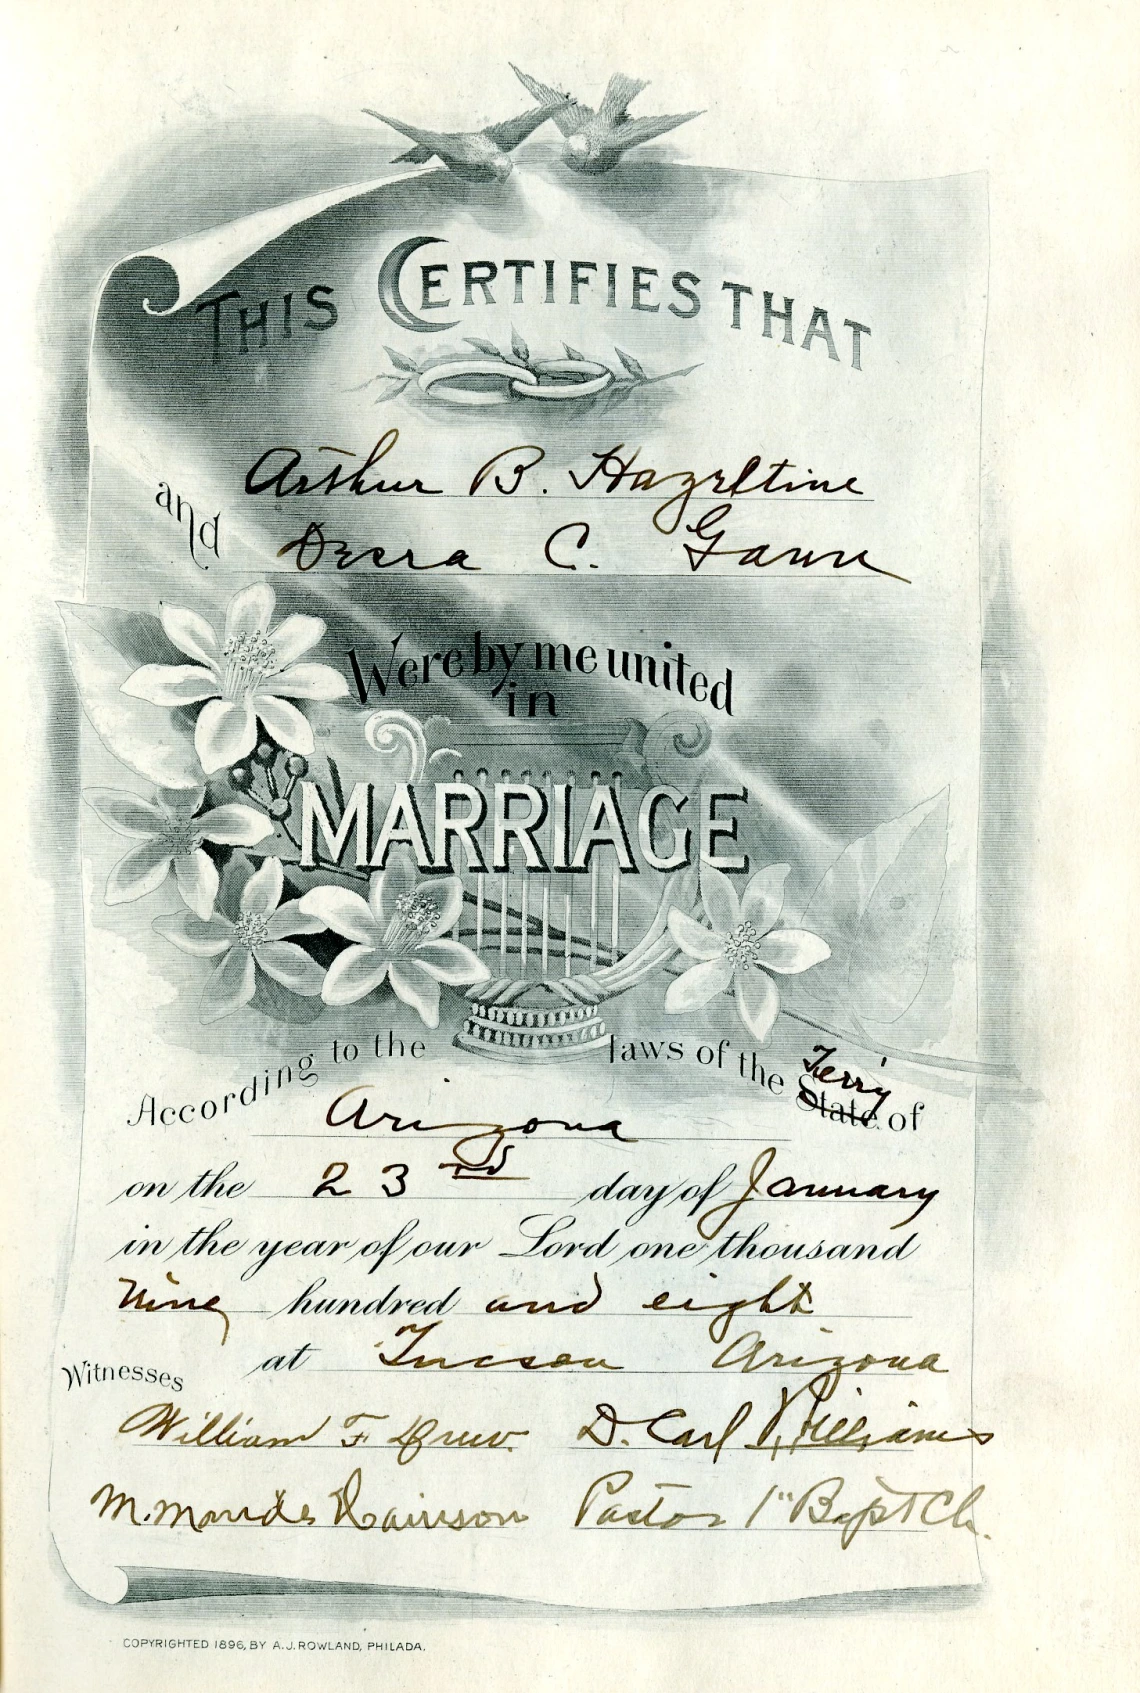 THIS CERTIFIES THAT
Arthur B. Hazeltine
and
C. Gaw
Were by me united
in
MARRIAGE
According to the laws of the Terry State of
Arizona
on the 23rd day of January
in the year of our Lord one thousand
nine hundred and eight
at Tucson Arizona
Witnesses
William F. Drew. D. Carl Williams
M. Pastor 1st Bapt Ch.
COPYRIGHTED 1896, BY A.J. ROWLAND, PHILADA.